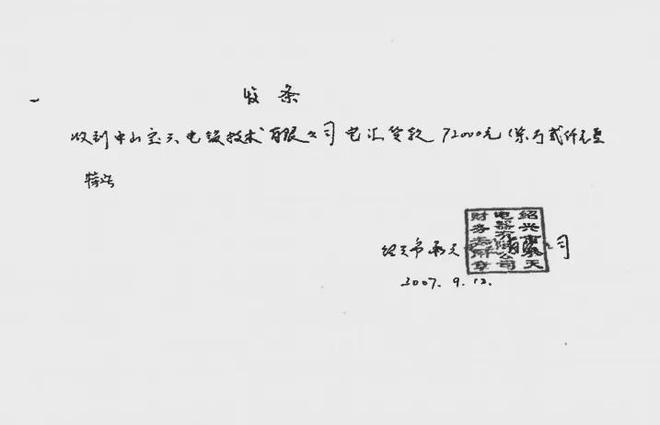 收条
收到中山宝元电缆技术有限公司电汇货款72000元(柒万贰仟元整
特此
绍兴市承天 有限公司
2007.9.12.
绍兴市承天
电器有限公司
财务专用章